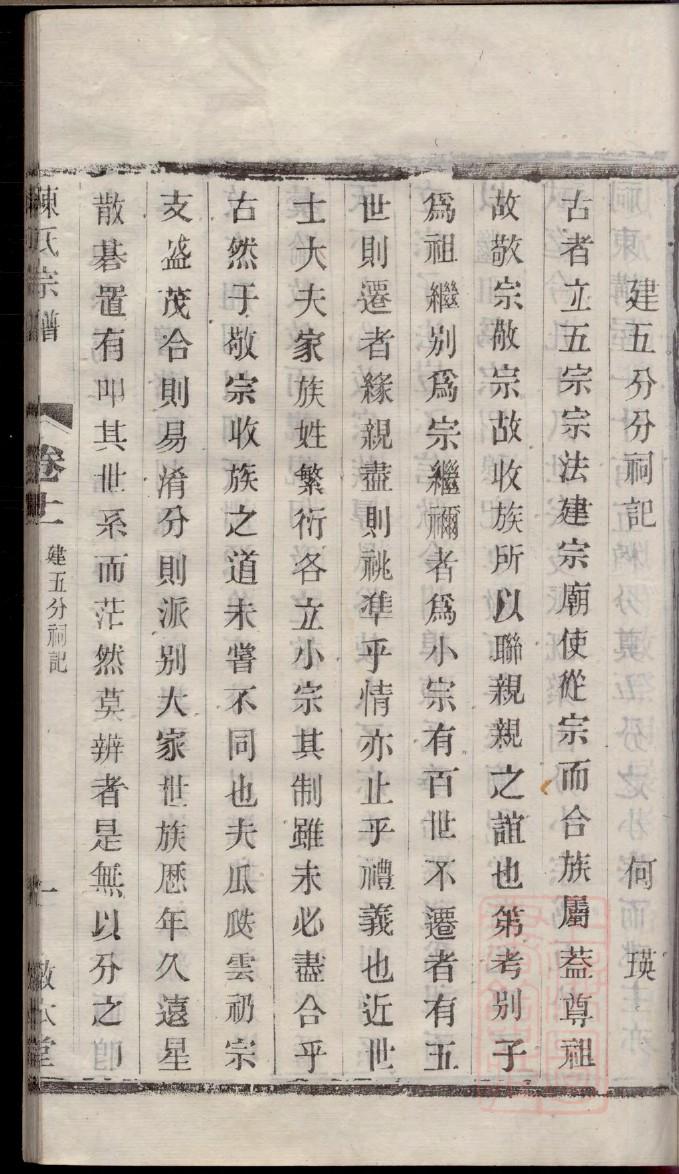 建五分分祠記　何瑛
古者立五宗宗法建宗廟使從宗而合族屬葢尊祖
故敬宗敬宗故收族所以聯親親之誼也第考別子
爲祖繼別爲宗繼禰者爲小宗有百世不遷者有五
世則遷者緣親盡則祧準乎情亦止乎禮義也近世
士大夫家族姓繁衍各立小宗其制雖未必盡合乎
古然于敬宗收族之道未甞不同也夫瓜瓞雲礽宗
支盛茂合則易淆分則派別大家世族歴年久遠星
散碁置有叩其世系而茫然莫辨者是無以分之
陳氏宗譜　卷十一　建五分祠記　一　敬本堂